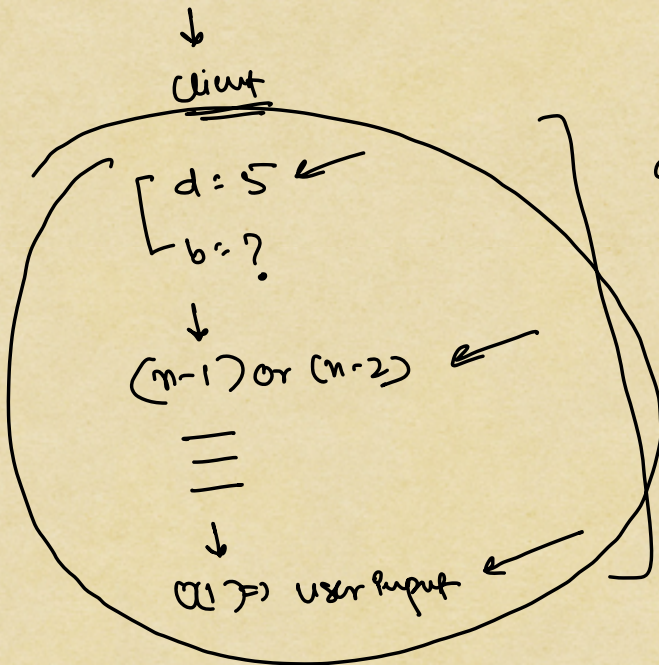 client
d = 5
b = ?
(n-1) or (n-2)
O(1) => user input